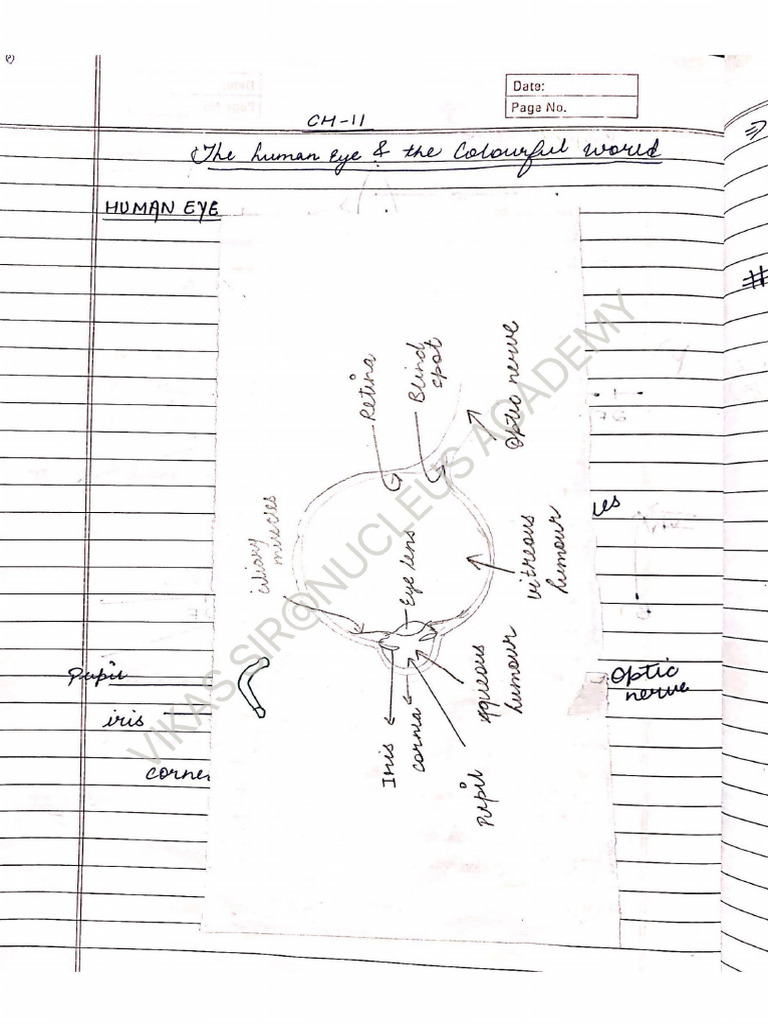 Date:
Page No.
CH-11
The human eye & the colourful world
HUMAN EYE
Retina
Blind spot
Optic nerve
ciliary muscles
Eye lens
vitreous humour
aqueous humour
Iris
cornia
Pupil
Pupil
iris
corne
Optic
nerve
VIKAS SIR@NUCLEUS ACADEMY